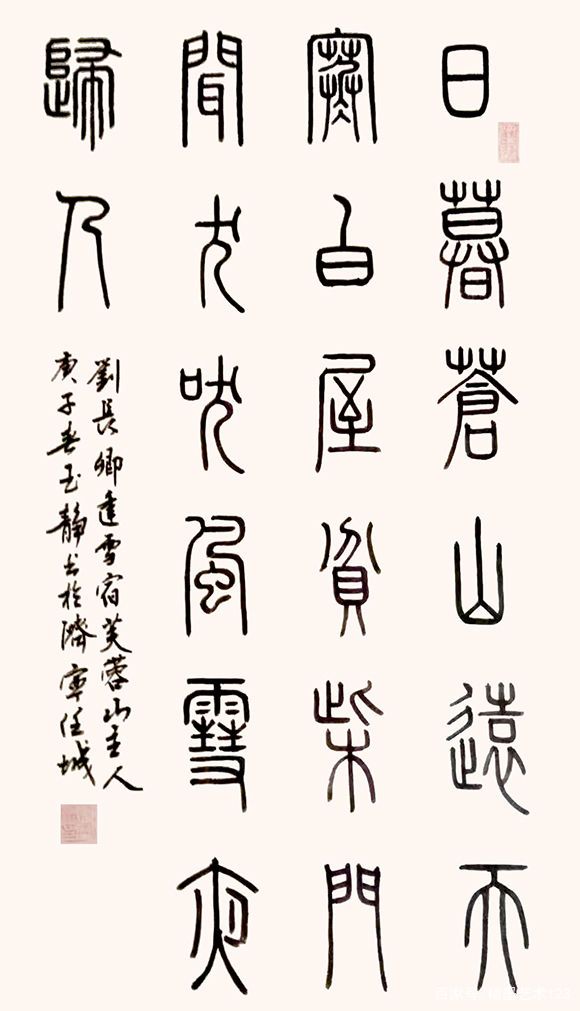 日暮蒼山遠天
寒白屋貧柴門
聞犬吠風雪夜
歸人
劉長卿逢雪宿芙蓉山主人
庚子春玉静书於濟寧任城